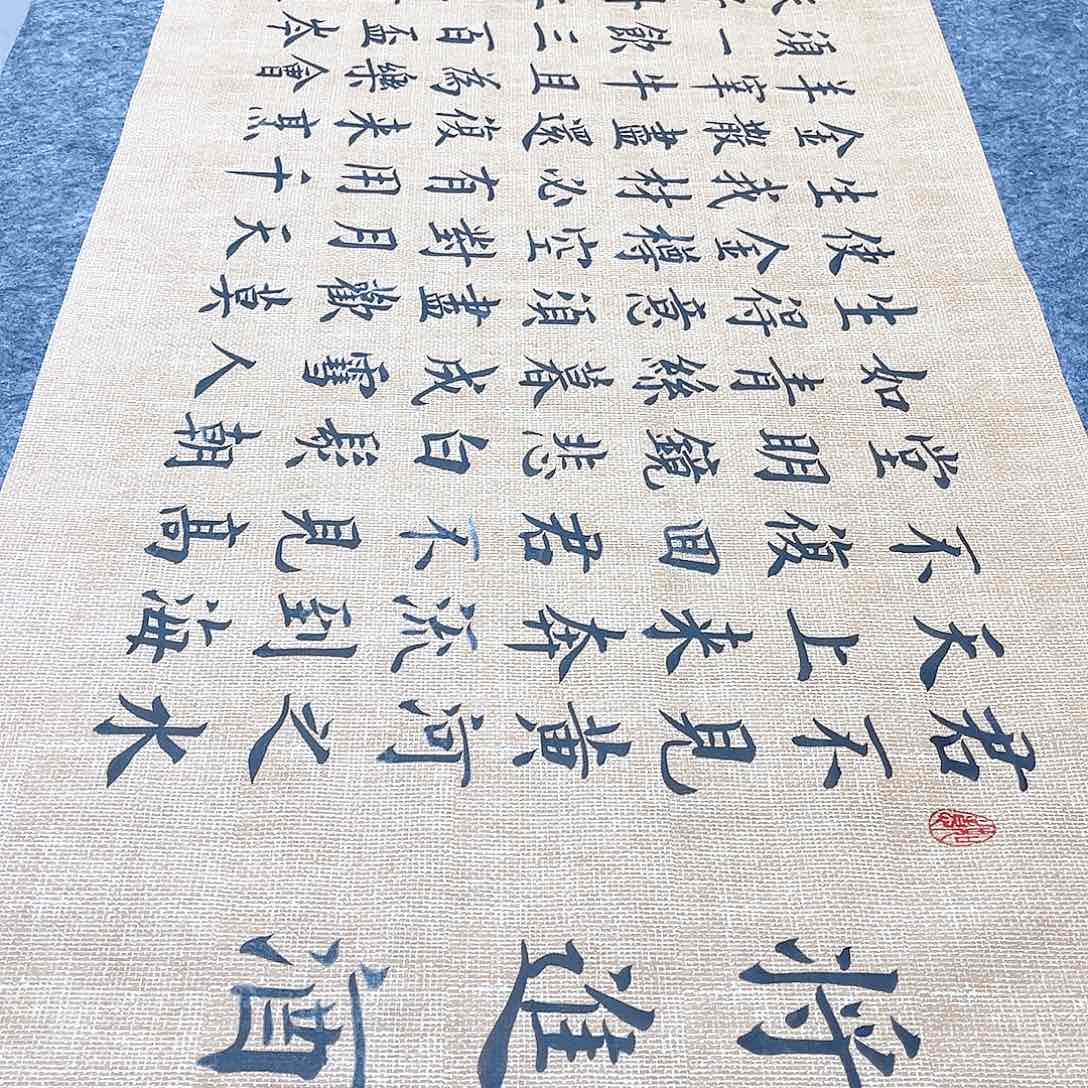 将進酒
君不見黃河之水
天上来奔流到海
不復回君不見高
堂明鏡悲白髮朝
如青絲暮成雪人
生得意須盡歡莫
使金樽空對月天
生我材必有用千
金散盡還復来烹
羊宰牛且為樂會
須一飲三百盃岑